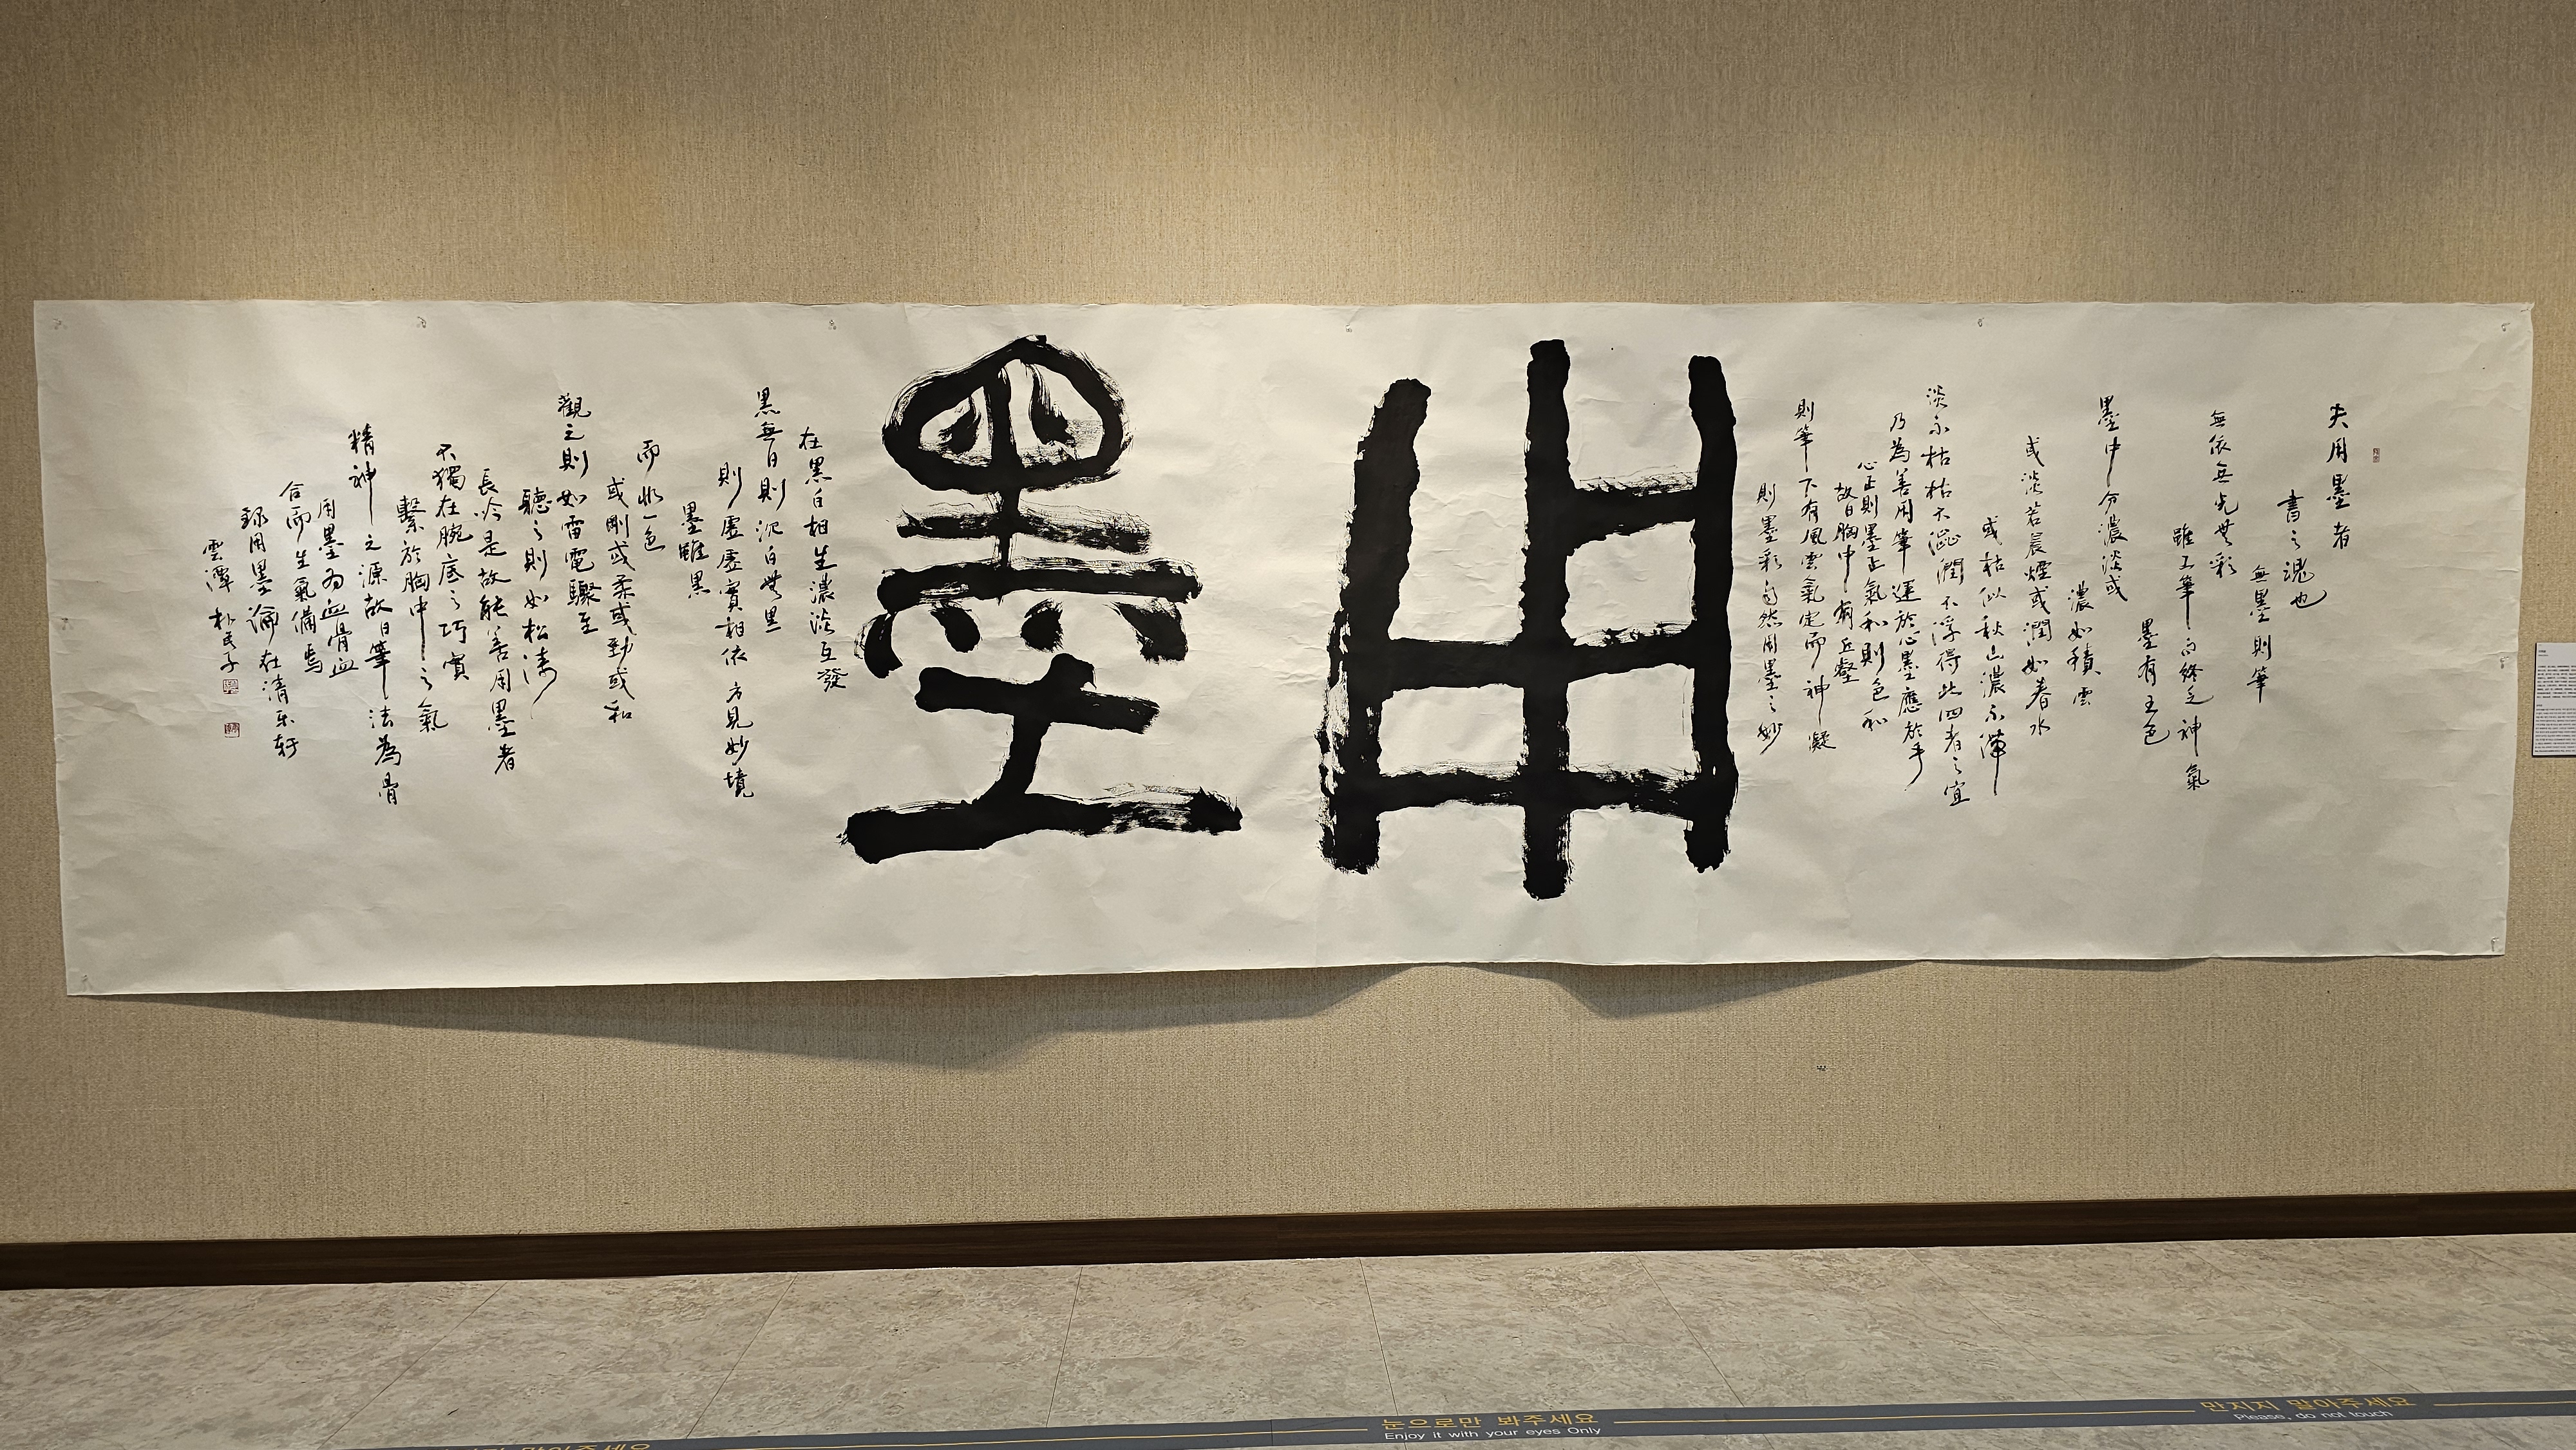 夫用墨者
書之魂也
無墨則筆
無依無光無彩
雖工筆而終乏神氣
墨有五色
墨中分濃淡或
濃如積雲
或淡若晨煙或潤如春水
或枯似秋山濃不滯
淡不枯枯不澀潤不浮得此四者之宜
乃為善用筆運於心墨應於手
心正則墨正氣和則色和
故曰胸中有丘壑
則筆下有風雲氣定而神凝
則墨彩自然用墨之妙
用墨
在黑白相生濃淡互發
黑無白則泥白無黑
則虛虛實相依方見妙境
墨雖黑
而非一色
或剛或柔或勁或和
觀之則如雷電驟至
聽之則如松濤
長吟是故能善用墨者
不獨在腕底之巧實
繫於胸中之氣
精神之源故曰筆法為骨
用墨為血骨血
合而生氣備焉
錄用墨論在清
雲潭 朴民子
눈으로만 봐주세요
Enjoy it with your eyes Only
만지지 말아주세요
Please, do not touch